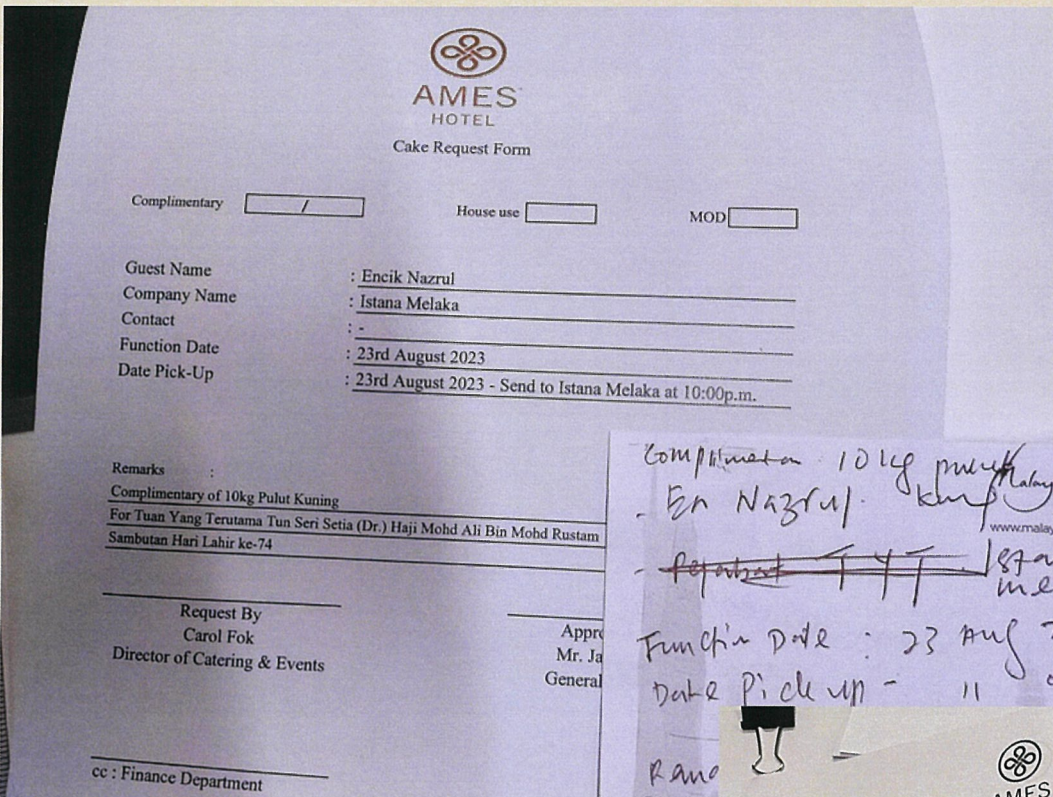 AMES
HOTEL
Cake Request Form
Complimentary / House use MOD
Guest Name : Encik Nazrul
Company Name : Istana Melaka
Contact : -
Function Date : 23rd August 2023
Date Pick-Up : 23rd August 2023 - Send to Istana Melaka at 10:00p.m.
Remarks :
Complimentary of 10kg Pulut Kuning
For Tuan Yang Terutama Tun Seri Setia (Dr.) Haji Mohd Ali Bin Mohd Rustam
Sambutan Hari Lahir ke-74
Request By
Carol Fok
Director of Catering & Events
Appro
Mr. Ja
General
cc : Finance Department
10 kg
- En Nazrul.
www.malay
- Pejabat TYT Ista
me
Function Date : 23 Aug
Date Pick up - 11
AMES